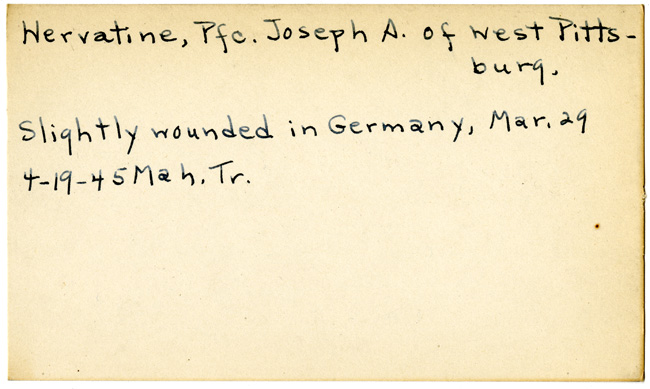 Nervatine, Pfc. Joseph A. of West Pitts-
burg.
Slightly wounded in Germany, Mar. 29
4-19-45 Mah. Tr.